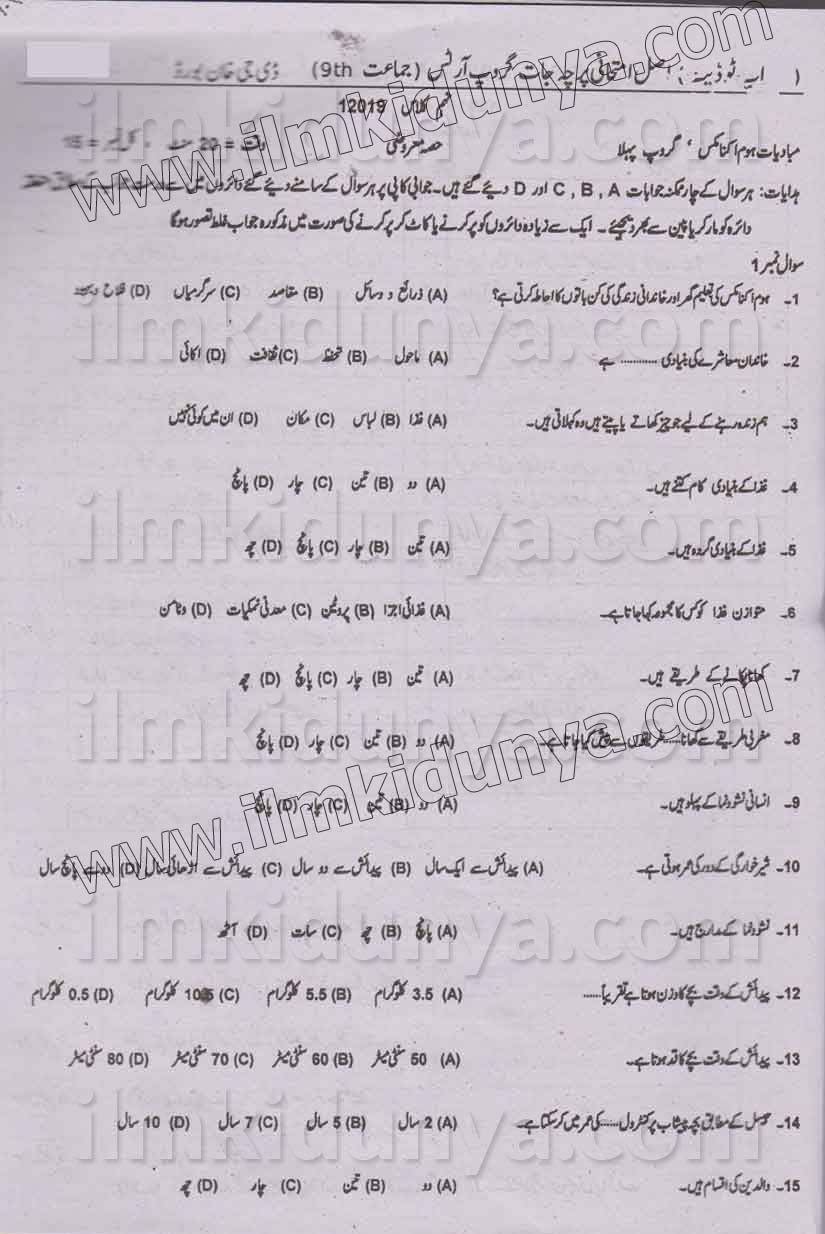 ( اپ ٹو ڈیٹ ) اصل امتحانی پرچہ جات گروپ آرٹس ( جماعت 9th ) ڈی جی خان بورڈ
12019
مبادیات ہوم اکنامکس ' گروپ پہلا حصہ معروضی وقت = 20 منٹ ، کل نمبر = 15
ہدایات: ہر سوال کے چار ممکنہ جوابات C , B , A اور D دیئے گئے ہیں۔ جوابی کاپی پر ہر سوال کے سامنے دیئے گئے دائروں میں سے درست جواب کے مطابق متعلقہ
دائرہ کو مارکر یا پین سے بھر دیجئیے۔ ایک سے زیادہ دائروں کو پر کرنے یا کاٹ کر پر کرنے کی صورت میں مذکورہ جواب غلط تصور ہوگا
سوال نمبر 1
1۔ ہوم اکنامکس کی تعلیم گھر اور خاندانی زندگی کی کن باتوں کا احاطہ کرتی ہے؟ (A) ذرائع و وسائل (B) مقاصد (C) سرگرمیاں (D) فلاح و بہبود
2۔ خاندان معاشرے کی بنیادی ............ ہے (A) ماحول (B) تحفظ (C) ثقافت (D) اکائی
3۔ ہم زندہ رہنے کے لیے جو چیز کھاتے یا پیتے ہیں وہ کہلاتی ہیں۔ (A) غذا (B) لباس (C) مکان (D) ان میں کوئی نہیں
4۔ غذا کے بنیادی کام کتنے ہیں۔ (A) دو (B) تین (C) چار (D) پانچ
5۔ غذا کے بنیادی گروہ ہیں۔ (A) تین (B) چار (C) پانچ (D) چھ
6۔ متوازن غذا کو کس کا مجموعہ کہا جاتا ہے۔ (A) غذائی اجزا (B) پروٹین (C) معدنی نمکیات (D) وٹامن
7۔ کھانا پکانے کے طریقے ہیں۔ (A) تین (B) چار (C) پانچ (D) چھ
8۔ مغربی طریقے سے کھانا ...... طریقوں سے پیش کیا جاتا ہے۔ (A) دو (B) تین (C) چار (D) پانچ
9۔ انسانی نشوونما کے پہلو ہیں۔ (A) دو (B) تین (C) چار (D) پانچ
10۔ شیر خوارگی کے دور کی عمر ہوتی ہے۔ (A) پیدائش سے ایک سال (B) پیدائش سے دو سال (C) پیدائش سے اڑھائی سال (D) دو سے پانچ سال
11۔ نشوونما کے مدارج ہیں۔ (A) پانچ (B) چھ (C) سات (D) آٹھ
12۔ پیدائش کے وقت بچے کا وزن ہوتا ہے تقریباً ...... (A) 3.5 کلوگرام (B) 5.5 کلوگرام (C) 10.5 کلوگرام (D) 0.5 کلوگرام
13۔ پیدائش کے وقت بچے کا قد ہوتا ہے۔ (A) 50 سنٹی میٹر (B) 60 سنٹی میٹر (C) 70 سنٹی میٹر (D) 80 سنٹی میٹر
14۔ گیسل کے مطابق بچہ پیشاب پر کنٹرول ...... کی عمر میں کر سکتا ہے۔ (A) 2 سال (B) 5 سال (C) 7 سال (D) 10 سال
15۔ والدین کی اقسام ہیں۔ (A) دو (B) تین (C) چار (D) چھ
www.ilmkidunya.com
ilmkidunya.com
ilmkidunya.com
ilmkidunya.com
www.ilmkidunya.com
ilmkidunya.com
ilmkidunya.com
ilmkidunya.com